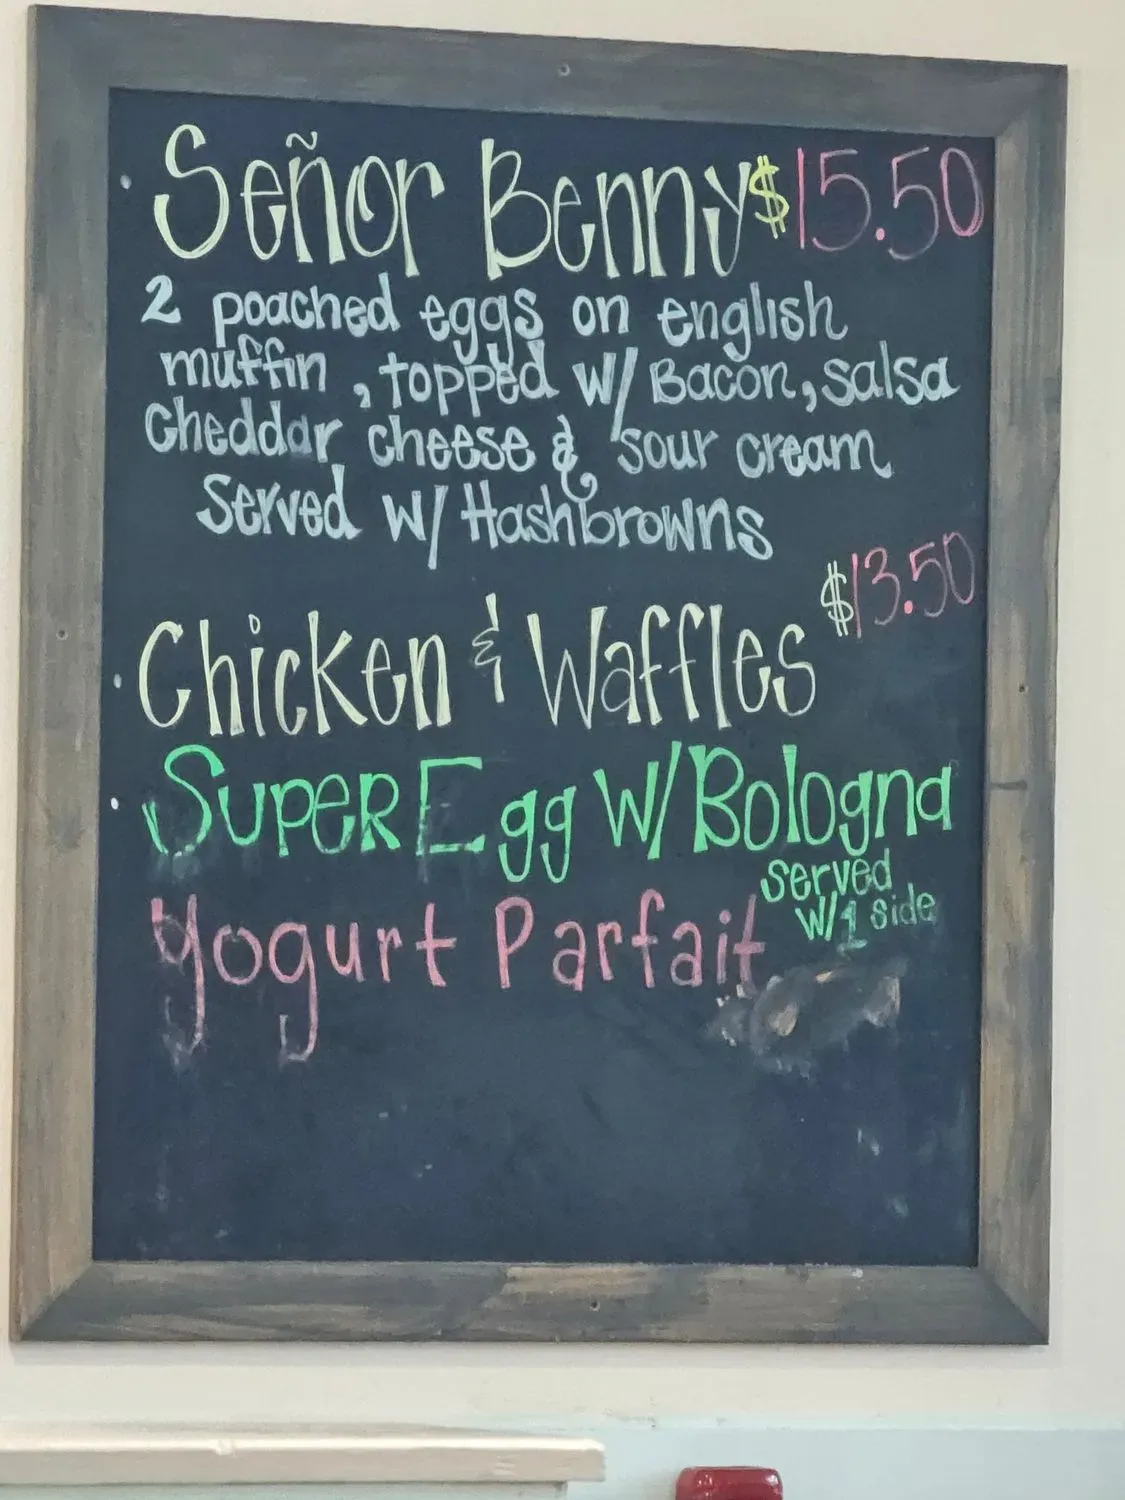 Señor Benny $15.50
2 poached eggs on english
muffin, topped w/ Bacon, salsa
Cheddar cheese & sour cream
Served w/ Hashbrowns
$13.50
Chicken & Waffles
Super Egg w/ Bologna
served
w/ 1 side
Yogurt Parfait